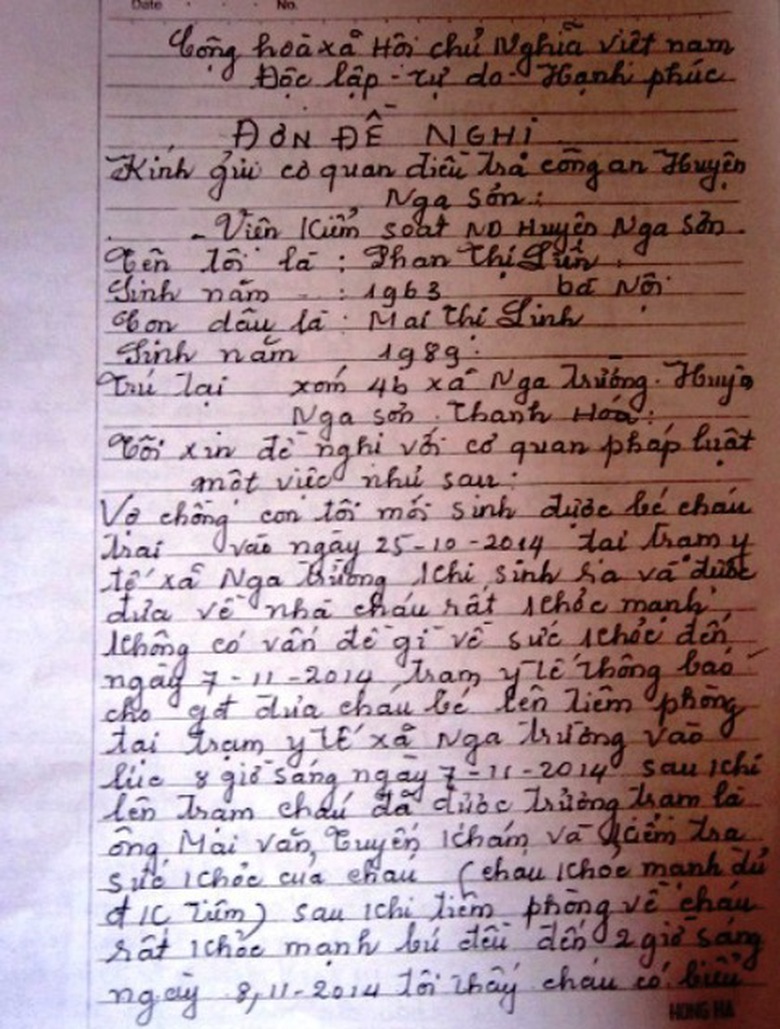 Date No.
Cộng hoà xã Hôi chủ Nghĩa việt nam
Độc lập - tự do - Hạnh phúc
ĐƠN ĐỀ NGHI
Kính gửi cơ quan điều tra công an Huyện
Nga Sơn:
- Viên Kiểm soat ND Huyện Nga Sơn.
Tên tôi là : Phan Thị
Sinh năm : 1963 bà Nội
Con dâu là : Mai thi Linh
Sinh năm 1989:
Trú tai xóm 4b xã Nga Trường. Huyện
Nga sơn. Thanh Hóa:
Tôi xin đề nghi với cơ quan pháp luật
một việc như sau:
Vợ chồng con tôi mới sinh được bé cháu
trai vào ngày 25-10-2014 tai tram y
tế xã Nga Trường khi sinh ra và được
đưa về nhà cháu rất khỏe mạnh,
không có vấn đề gì về sức khỏe đến
ngày 7-11-2014 tram y tế thông báo
cho gđ đưa cháu bé lên tiêm phòng
tai trạm y tế xã Nga Trường vào
lúc 8 giờ sáng ngày 7-11-2014 sau khi
lên tram cháu đã được trưởng tram là
ông Mai văn Tuyên khám và kiểm tra
sức khỏe của cháu (cháu khỏe mạnh đủ
đk tiêm) sau khi tiêm phòng về cháu
rất khỏe mạnh bú đều đến 2 giờ sáng
ngày 8, 11-2014 tôi thấy cháu có biểu
HONG HA